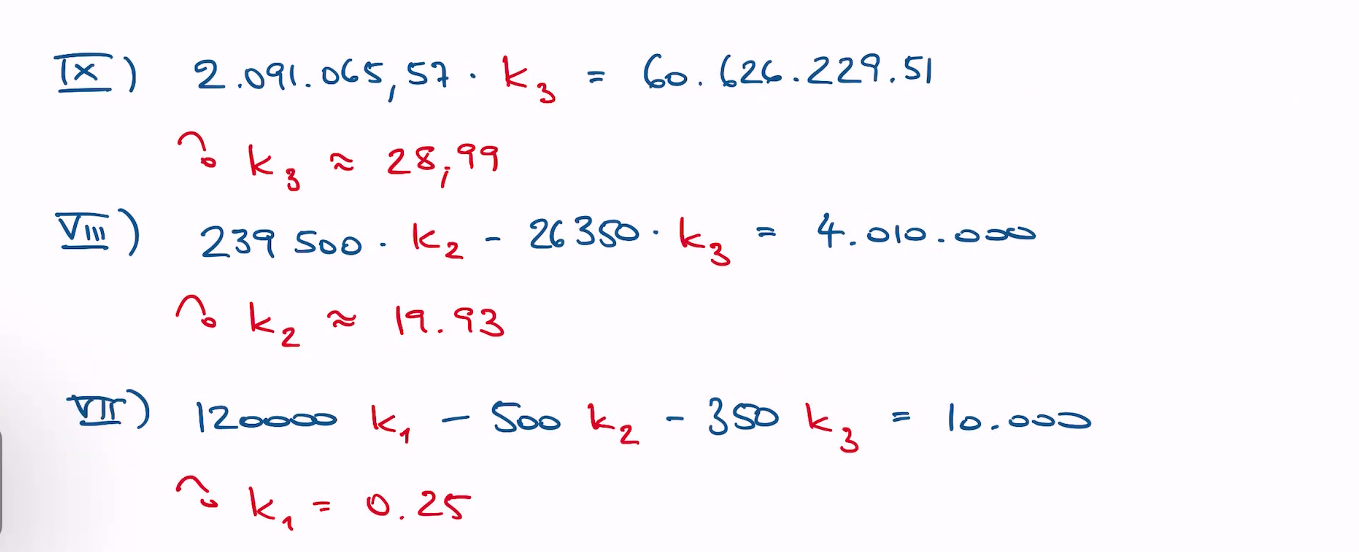 IX) 2.091.065,57 · k₃ = 60.626.229.51
↷ k₃ ≈ 28,99
VIII) 239 500 · k₂ - 26350 · k₃ = 4.010.000
↷ k₂ ≈ 19.93
VII) 120000 k₁ - 500 k₂ - 350 k₃ = 10.000
↷ k₁ = 0.25